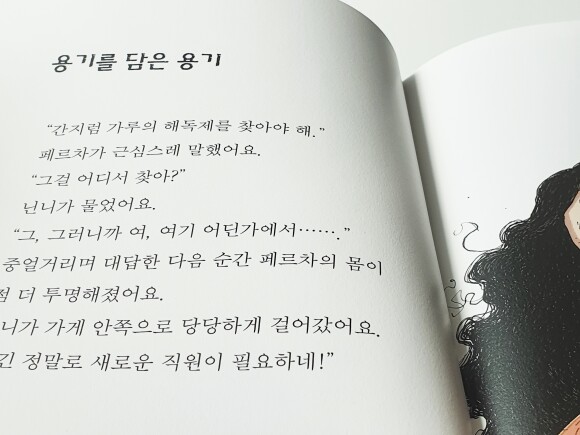 용기를 담은 용기
“간지럼 가루의 해독제를 찾아야 해.”
페르차가 근심스레 말했어요.
“그걸 어디서 찾아?”
닌니가 물었어요.
“그, 그러니까 여, 여기 어딘가에서…….”
중얼거리며 대답한 다음 순간 페르차의 몸이
더 투명해졌어요.
니가 가게 안쪽으로 당당하게 걸어갔어요.
정말로 새로운 직원이 필요하네!”